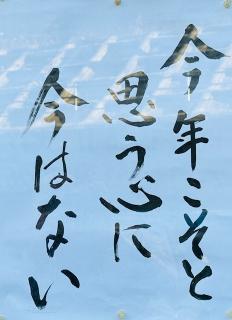 今年こそと
思う心に
今はない